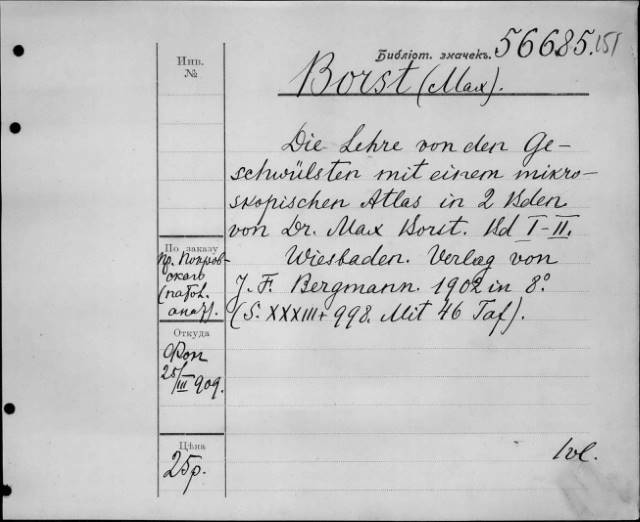 Инв.
№
Библіот. значекъ. 56685.151
Borst (Max).
Die Lehre von den Ge-
schwülsten mit einem mikro-
skopischen Atlas in 2 Bden
von Dr. Max Borst. Bd I-II.
Wiesbaden. Verlag von
J. F. Bergmann. 1902 in 8º
(S. XXXIII+998. Mit 46 Taf).
По заказу
пр. Покров-
скаго
(патол.
анат).
Откуда
Фон
25/III 909.
Цѣна
25р.
1 vl.